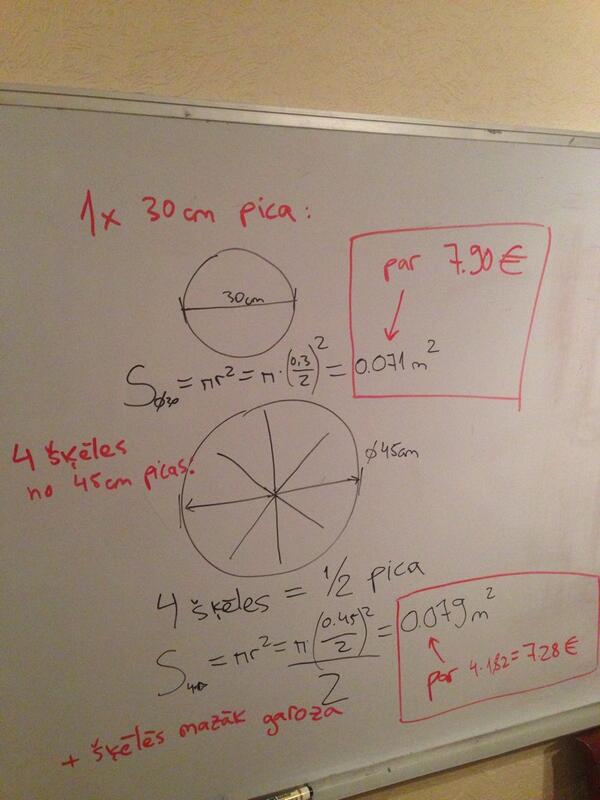 1x 30cm pica:
par 7.90€
30cm
S⌀30 = πr² = π·(0,3/2)² = 0.071m²
4 šķēles
no 45cm picas:
⌀45cm
4 šķēles = 1/2 pica
S = πr² = π(0.45/2)²/2 = 0.079m²
par 4·1,82=7.28€
+ šķēlēs mazāk garoza